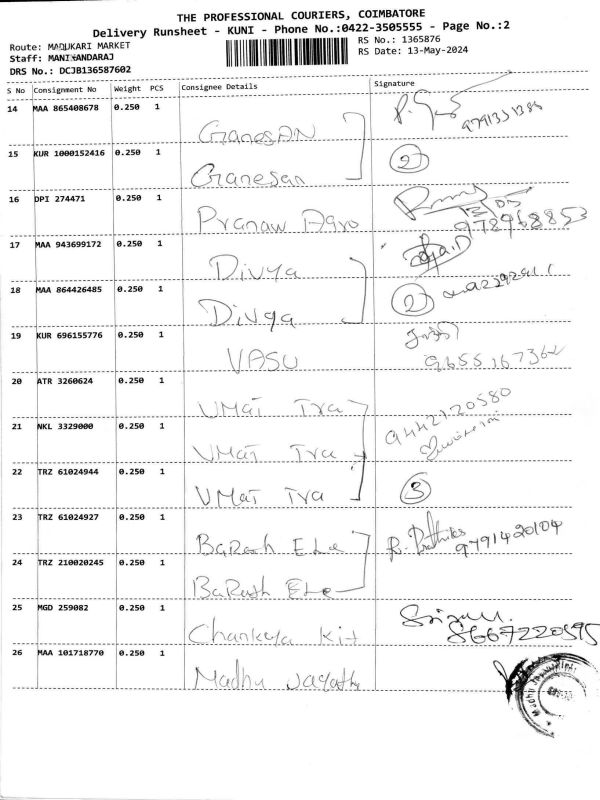 THE PROFESSIONAL COURIERS, COIMBATORE
Delivery Runsheet - KUNI - Phone No.:0422-3505555 - Page No.:2
Route: MADUKARI MARKET
RS No.: 1365876
Staff: MANIKANDARAJ
RS Date: 13-May-2024
DRS No.: DCJB136587602
S No Consignment No Weight PCS Consignee Details Signature
14 MAA 865408678 0.250 1 GanesAN
15 KUR 1000152416 0.250 1 Ganesan 2
16 DPI 274471 0.250 1 Pranaw Agro
978968853
17 MAA 943699172 0.250 1 Divya
18 MAA 864426485 0.250 1 Divya 2
19 KUR 696155776 0.250 1 VASU
20 ATR 3260624 0.250 1 UMAT Tra 9442120580
21 NKL 3329000 0.250 1 UMAT Tra
22 TRZ 61024944 0.250 1 UMAT Tra 3
23 TRZ 61024927 0.250 1 BaRath Ele 9791420104
24 TRZ 210020245 0.250 1 BaRath Ele
25 MGD 259082 0.250 1 Chankya Kit
8667220595
26 MAA 101718770 0.250 1 Madhu